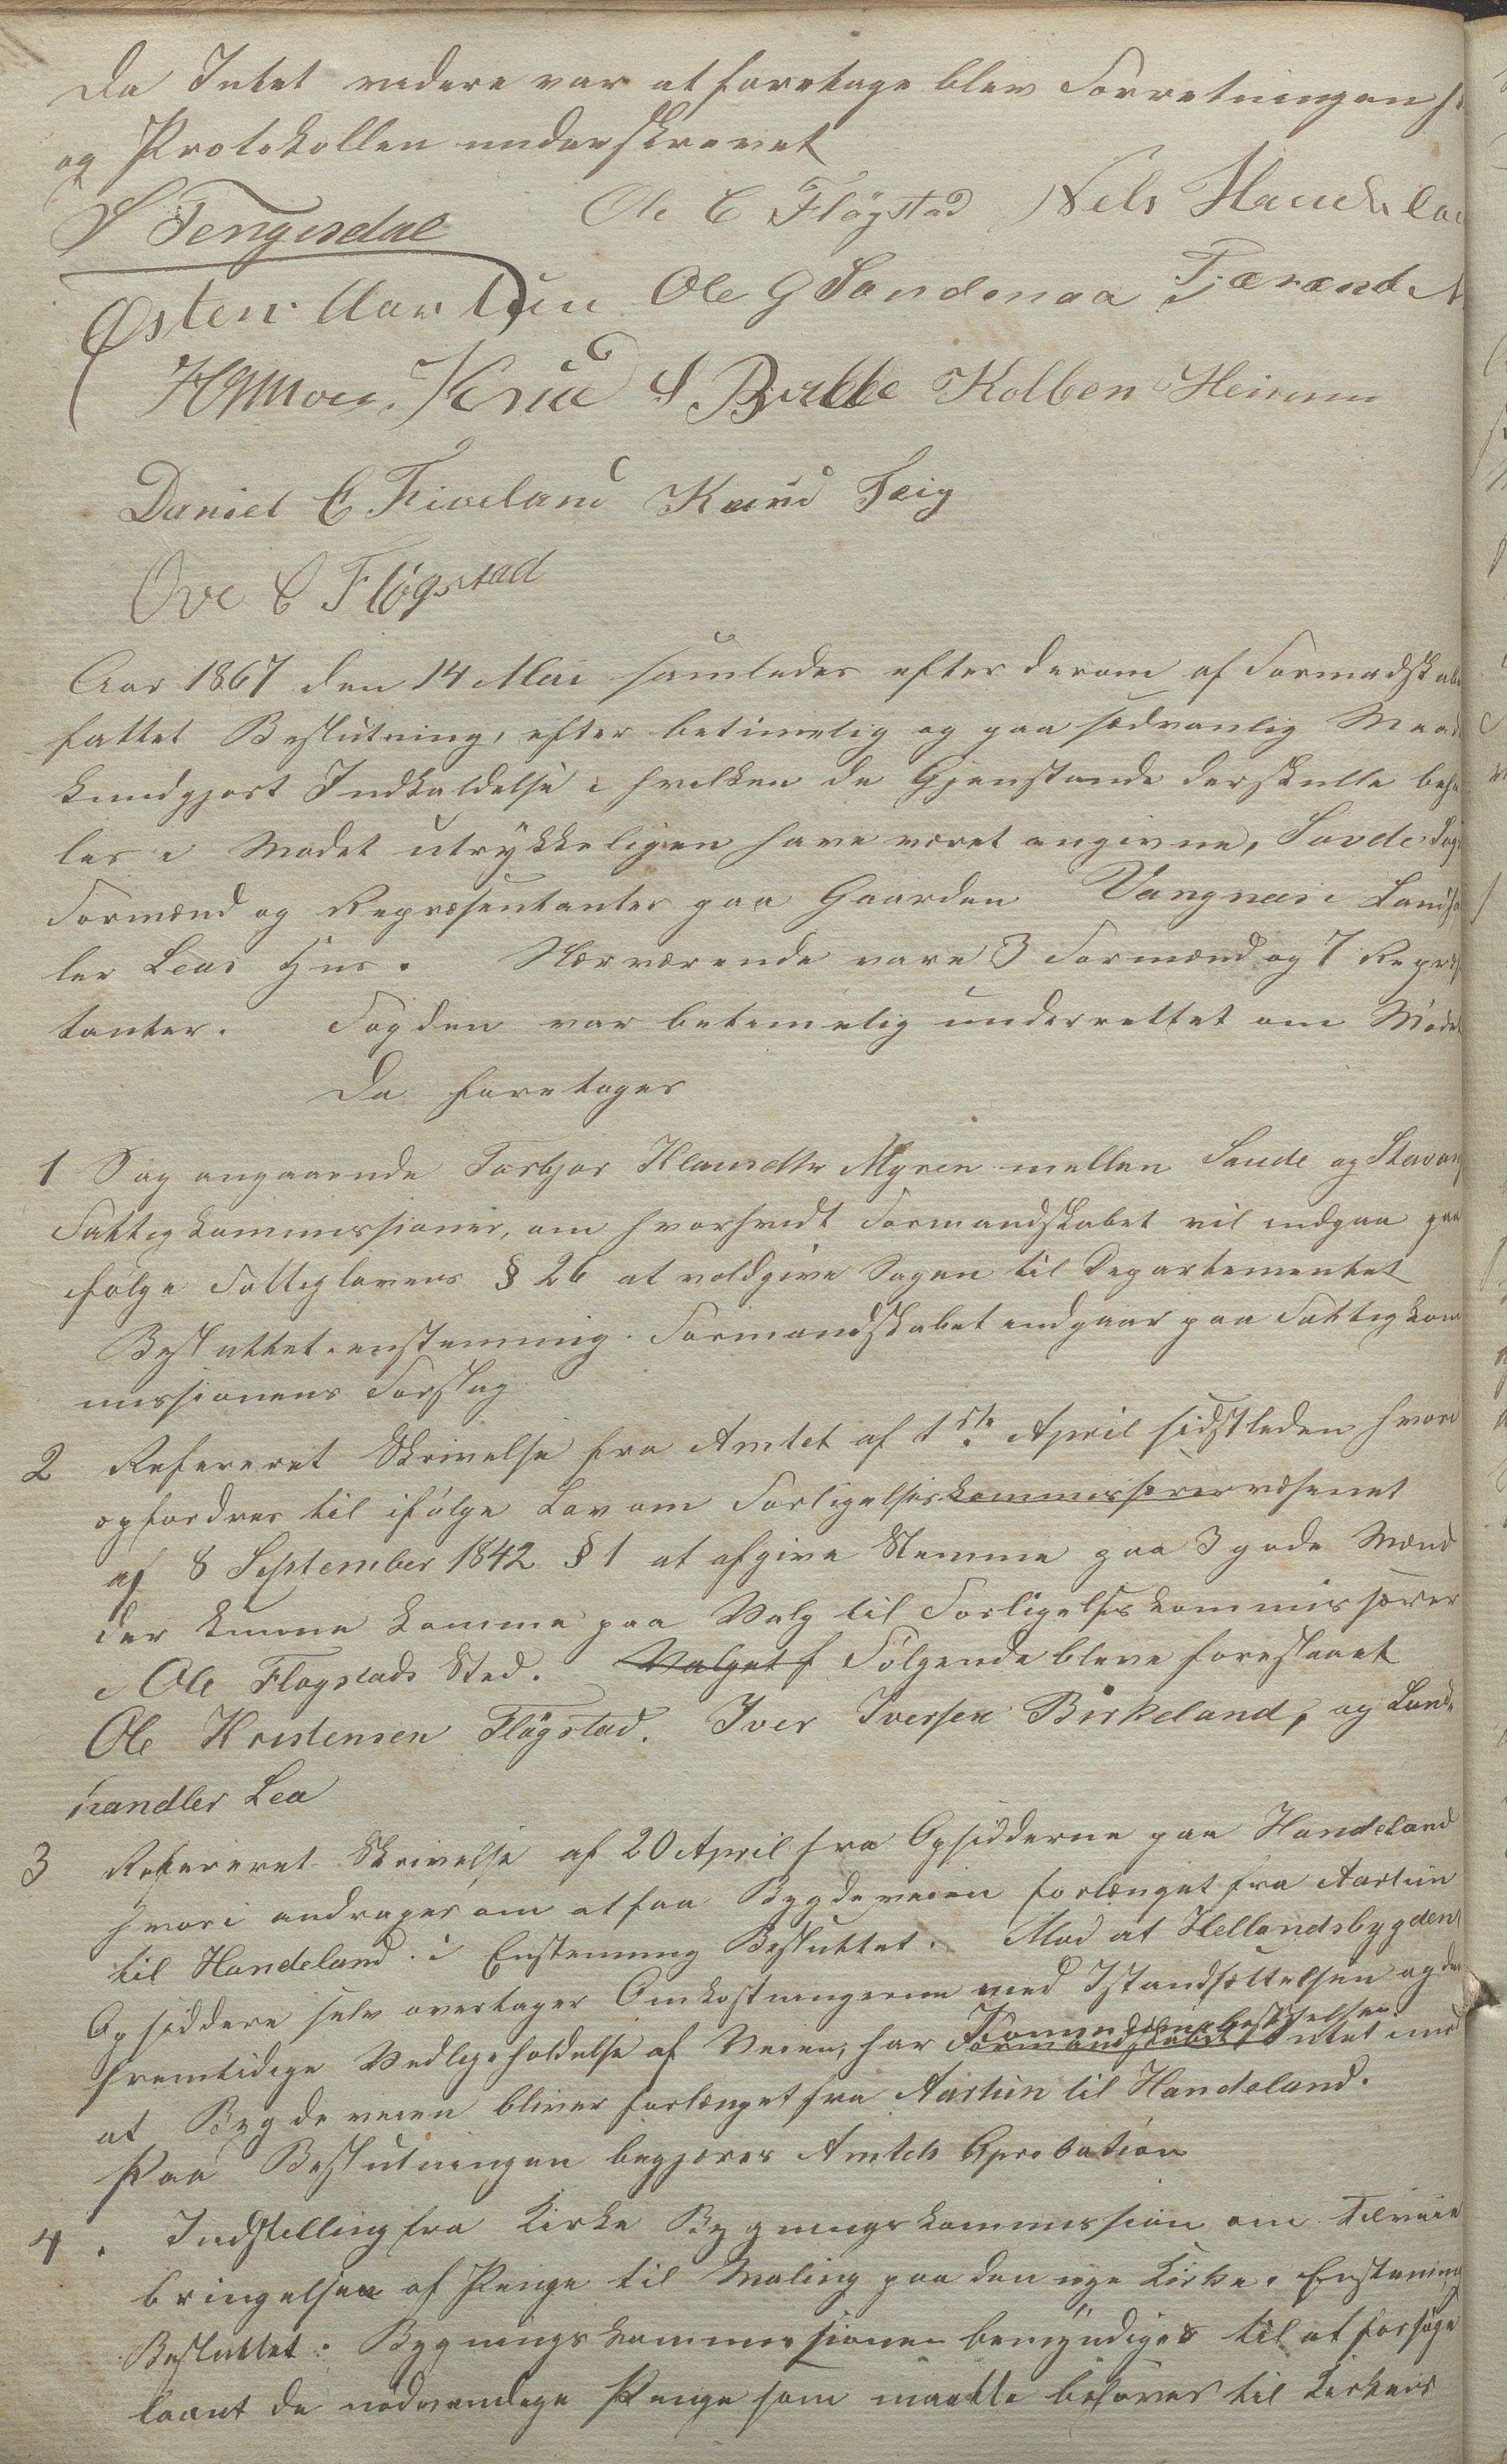 Da Intet videre var at foretage blev Forretningen
og Protokollen underskrevet
S Tengesdal Ole C Fløgstad Nels Handela
Østen Aartun Ole G Søndenaa Tjærand
Knud S Birkke Kolben Heimnu
Daniel E Fiveland Knud Feig
Ove C Fløgstad
Aar 1867 den 14 Mai samledes efter derom af Formadskab
fattet Beslutning, efter betimelig og paa sædvanlig Maad
kundgjort Indkaldelse i hvilken de Gjenstande der skulle beha
les i Mødet utrykkeligen have været angivne, Savde Sogn
Formænd og Repræsentanter paa Gaarden Vangnæs i Landha
ler Leas Hus. Nærværende vare 3 Formænd og 7 Repræs
tanter. Fogden var betimelig underrettet om Møde
Da foretoges
1 Sag angaaende Torbjør Klausdtr Myren mellem Saude og Stavang
Fattigkommissioner, om hvorhvidt Formandskabet vil indgaa paa
ifølge Fattiglovens § 26 at voldgive Sagen til Departementet
Besluttet enstemmig. Formandskabet indgaar paa Fattigkom
missionens Forslag
2 Refereret Skrivelse fra Amtet af 1ste April sidstleden hvori
opfordres til ifølge Lov om Forligelseskommissærervæsenet
af 8 September 1842 § 1 at afgive Stemme paa 3 gode Mænd
der kunne komme paa Valg til Forligelseskommissærer
i Ole Flogstads Sted. Valget f Følgende bleve foreslaaet
Ole Kristensen Fløgstad. Iver Iversen Birkeland, og Land-
handler Lea
3 Refereret Skrivelse af 20 April fra Opsidderne paa Handeland
hvori andrages om at faa Bygdeveien forlænget fra Aartun
til Handeland. i Enstemmig Besluttet. Mod at Hellandsbygdens
Opsiddere selv overtager Omkostningerne med Istandsættelsen og den
fremtidige Vedligeholdelse af Veien, har Formandskabet Kommunebestyrelsen Intet imod
at Bygdeveien bliver forlænget fra Aartun til Handeland.
Paa Beslutningen begjæres Amtets Aprobation
4. Indstilling fra Kirke Bygningskommission om tilveie
bringelsen af Penge til Maling paa den nye Kirke. Enstemmig
Besluttet: Bygningskommissionen bemyndiges til at forsøge
laant de nødvendige Penge som maatte behøves til Kirkens